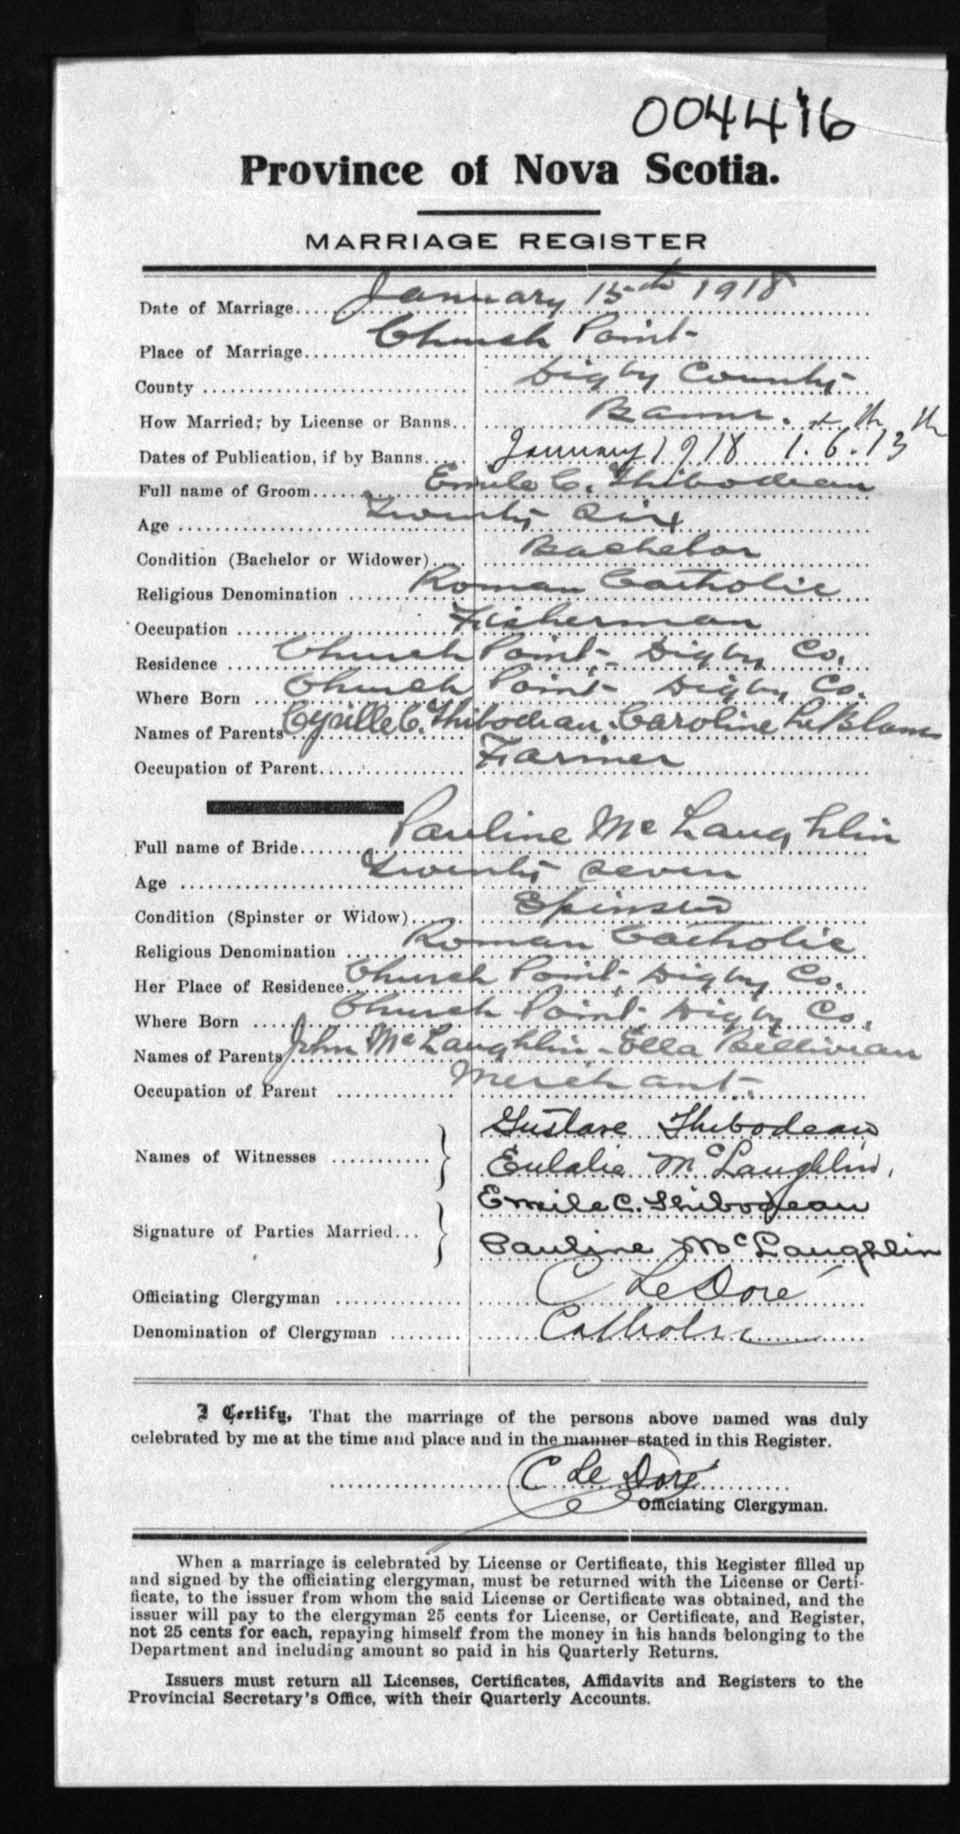 004416
Province of Nova Scotia.
MARRIAGE REGISTER
Date of Marriage.... January 15th 1918
Place of Marriage.... Church Point
County .... Digby County
How Married; by License or Banns.. Banns.
Dates of Publication, if by Banns.... January 1918 1. 6. 13 th th
Full name of Groom.... Emile C. Thibodeau
Age .... Twenty Six
Condition (Bachelor or Widower).. Bachelor
Religious Denomination .... Roman Catholic
Occupation .... Fisherman
Residence .... Church Point Digby Co.
Where Born .... Church Point Digby Co.
Names of Parents Cyrille C. Thibodeau. Caroline LeBlanc
Occupation of Parent.... Farmer
Full name of Bride.... Pauline Mc Laughlin
Age .... Twenty Seven
Condition (Spinster or Widow).... Spinster
Religious Denomination .... Roman Catholic
Her Place of Residence.. Church Point, Digby Co.
Where Born .... Church Point Digby Co.
Names of Parents John Mc Laughlin - Ella
Occupation of Parent .... Merchant
Names of Witnesses .... Gustave Thibodeau
Eulalie Mc Laughlin.
Signature of Parties Married... Emile C. Thibodeau
Pauline Mc Laughlin
Officiating Clergyman .... C LeDoré
Denomination of Clergyman .... Catholic
I Certify, That the marriage of the persons above named was duly
celebrated by me at the time and place and in the manner stated in this Register.
C Le Doré
Officiating Clergyman.
When a marriage is celebrated by License or Certificate, this Register filled up
and signed by the officiating clergyman, must be returned with the License or Certi-
ficate, to the issuer from whom the said License or Certificate was obtained, and the
issuer will pay to the clergyman 25 cents for License, or Certificate, and Register,
not 25 cents for each, repaying himself from the money in his hands belonging to the
Department and including amount so paid in his Quarterly Returns.
Issuers must return all Licenses, Certificates, Affidavits and Registers to the
Provincial Secretary's Office, with their Quarterly Accounts.